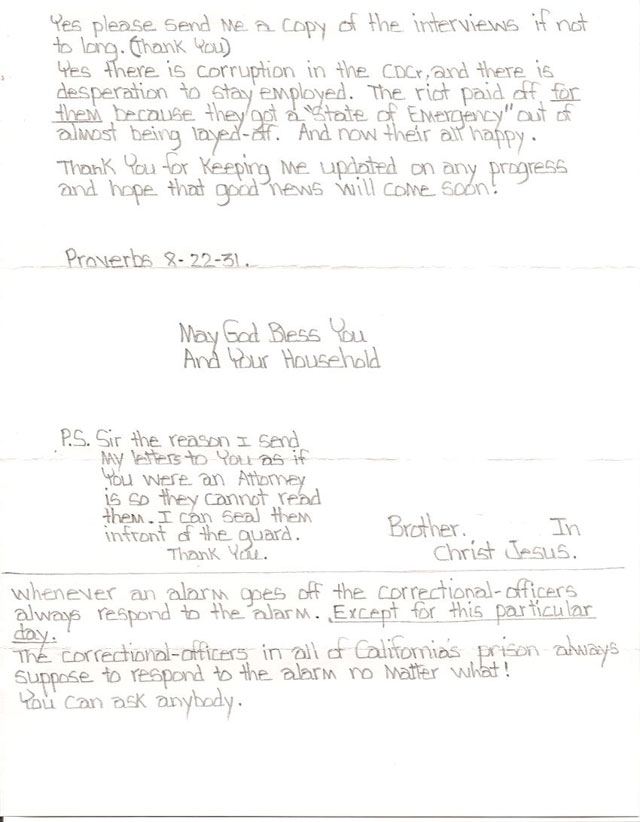 Yes please send me a copy of the interviews if not
to long. (Thank You)
Yes there is corruption in the CDCr, and there is
desperation to stay employed. The riot paid off for
them because they got a "State of Emergency" out of
almost being layed-off. And now their all happy.
Thank You for keeping me updated on any progress
and hope that good news will come soon!
Proverbs 8-22-31.
May God Bless You
And Your Household
P.S. Sir the reason I send
my letters to You as if
You were an Attorney
is so they cannot read
them. I can seal them
infront of the guard.
Thank You.
Brother. In
Christ Jesus.
whenever an alarm goes off the correctional-officers
always respond to the alarm. Except for this particular
day.
The correctional-officers in all of California's prison always
suppose to respond to the alarm no matter what!
You can ask anybody.